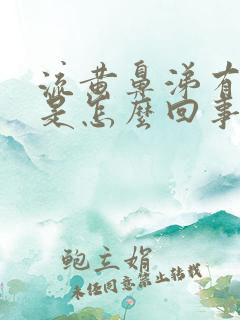 流黄鼻涕有
是怎麼回事
鲍主娟
未经同意禁止转载